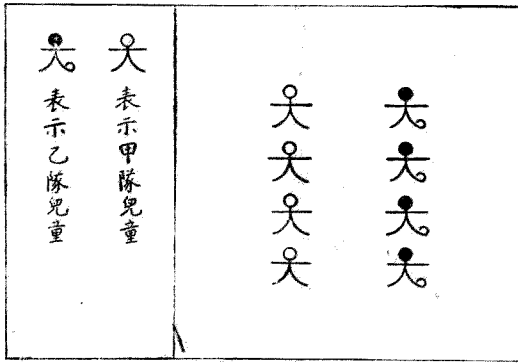 表示甲隊兒童
表示乙隊兒童